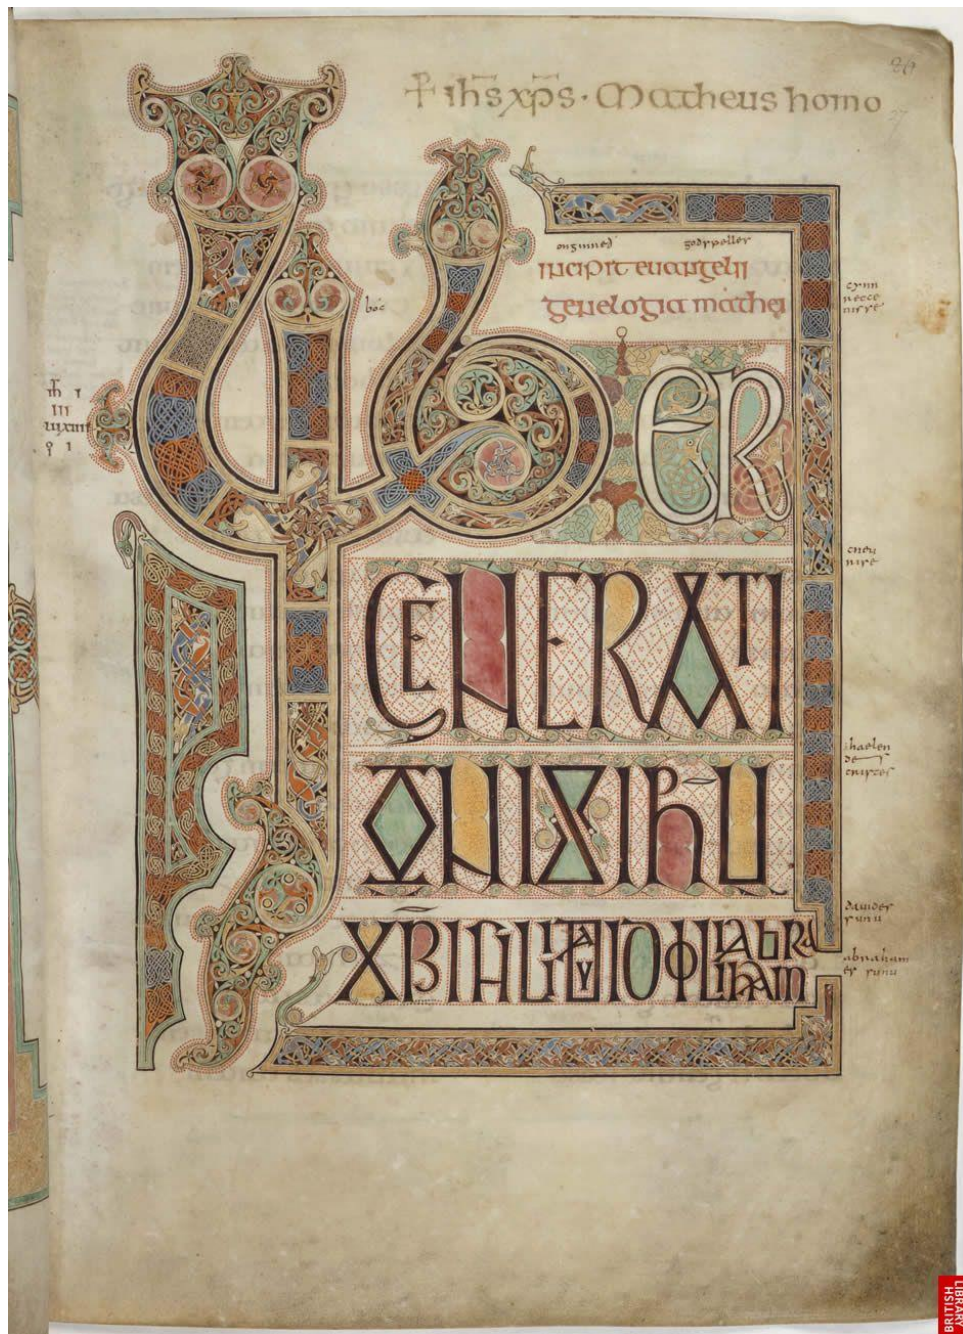 + ihs xps · Matheus homo
27
onginneð godspelles
incipit euangelii
genelogia mathei
bóc
LIBER
GENERATI
ONIS IHU
XPI FILII DAUID FILII ABRAHAM
haelen
des
cristes
dauides
sunu
abraham
es sunu
BRITISH
LIBRARY